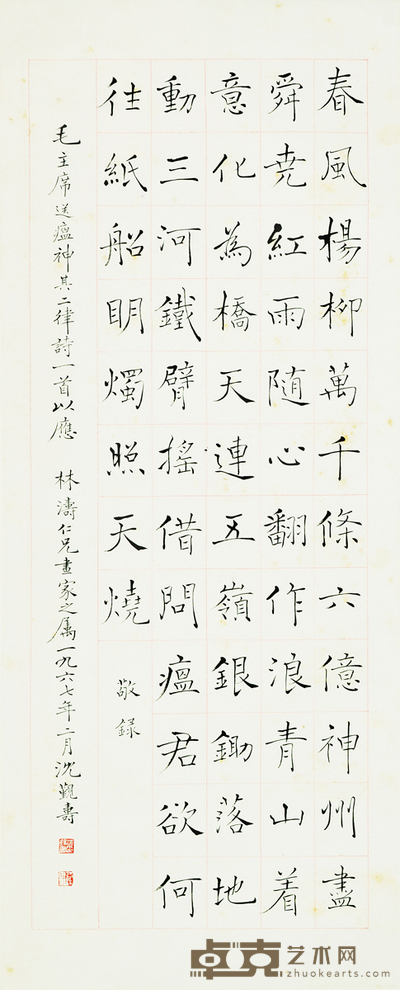 春風楊柳萬千條六億神州盡
舜尭紅雨随心翻作浪青山着
意化為橋天連五嶺銀鋤落地
動三河鐵臂搖借問瘟君欲何
往紙船眀燭照天燒
敬録
毛主席送瘟神其二律詩一首以應 林濤仁兄畫家之属一九六七年二月沈觀壽
卓克艺术网
zhuokearts.com